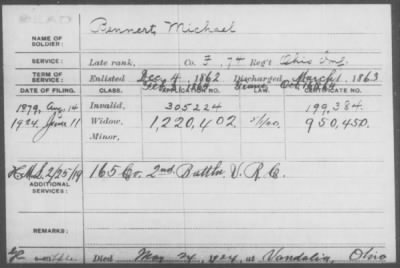 NAME OF SOLDIER: Bennert, Michael
SERVICE: Late rank, Co. F, 74 Reg't Ohio Inf.
TERM OF SERVICE: Enlisted Dec. 4, 1862 Discharged March 1, 1863
Feb. 1864 Oct. 1864
DATE OF FILING. CLASS. APPLICATION NO. LAW. CERTIFICATE NO.
1879, Aug. 14 Invalid. 305224 199,384.
1924, June 11 Widow, 1,220,402 950,450.
Minor.
2/25/19 165 Co. 2nd. Battln. V. R. C.
ADDITIONAL SERVICES:
REMARKS:
Died May 24, 1924, at Vandalia, Ohio